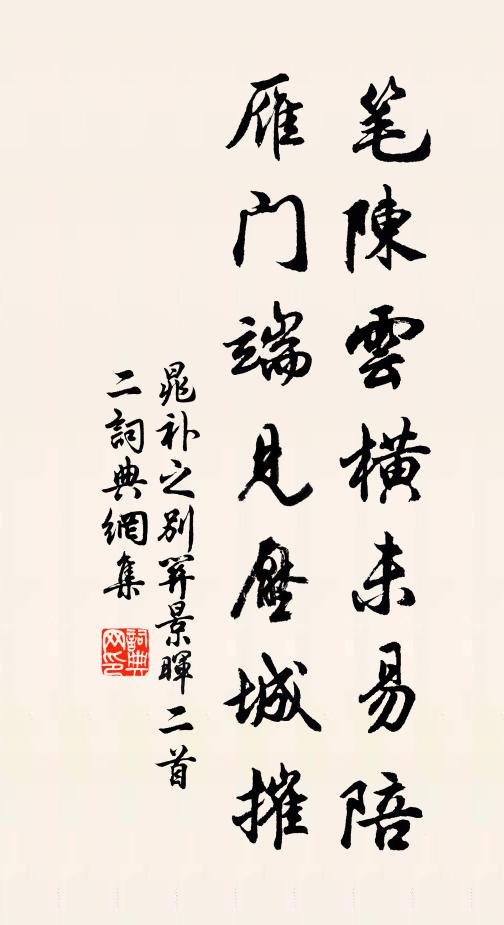 笔陳雲橫未易陪
雁门端见壓城摧
晁补之别景暉二首
二詞典網集
詞典网印